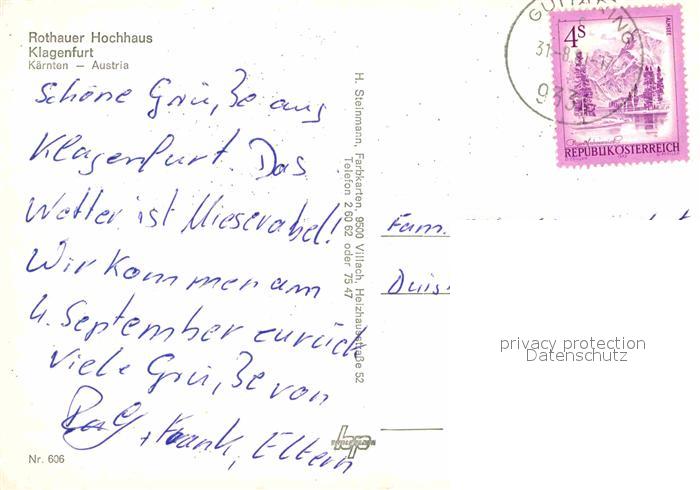 Rothauer Hochhaus
Klagenfurt
Kärnten – Austria
Schöne Grüße aus
Klagenfurt. Das
Wetter ist Mieserabel!
Wir kommen am
4. September zurück
Viele Grüße von
Ralf, Frank, Eltern
Nr. 606
H. Steinmann, Farbkarten, 9500 Villach, Heizhausstraße 52
Telefon 2 60 62 oder 75 47
GUTTARING
31.-8.
4S
ALMSEE
REPUBLIK ÖSTERREICH
Fam.
Duis
privacy protection
Datenschutz